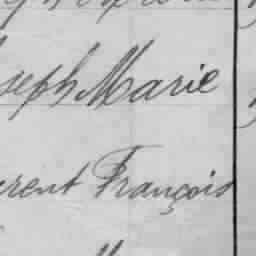 seph Marie
rent François